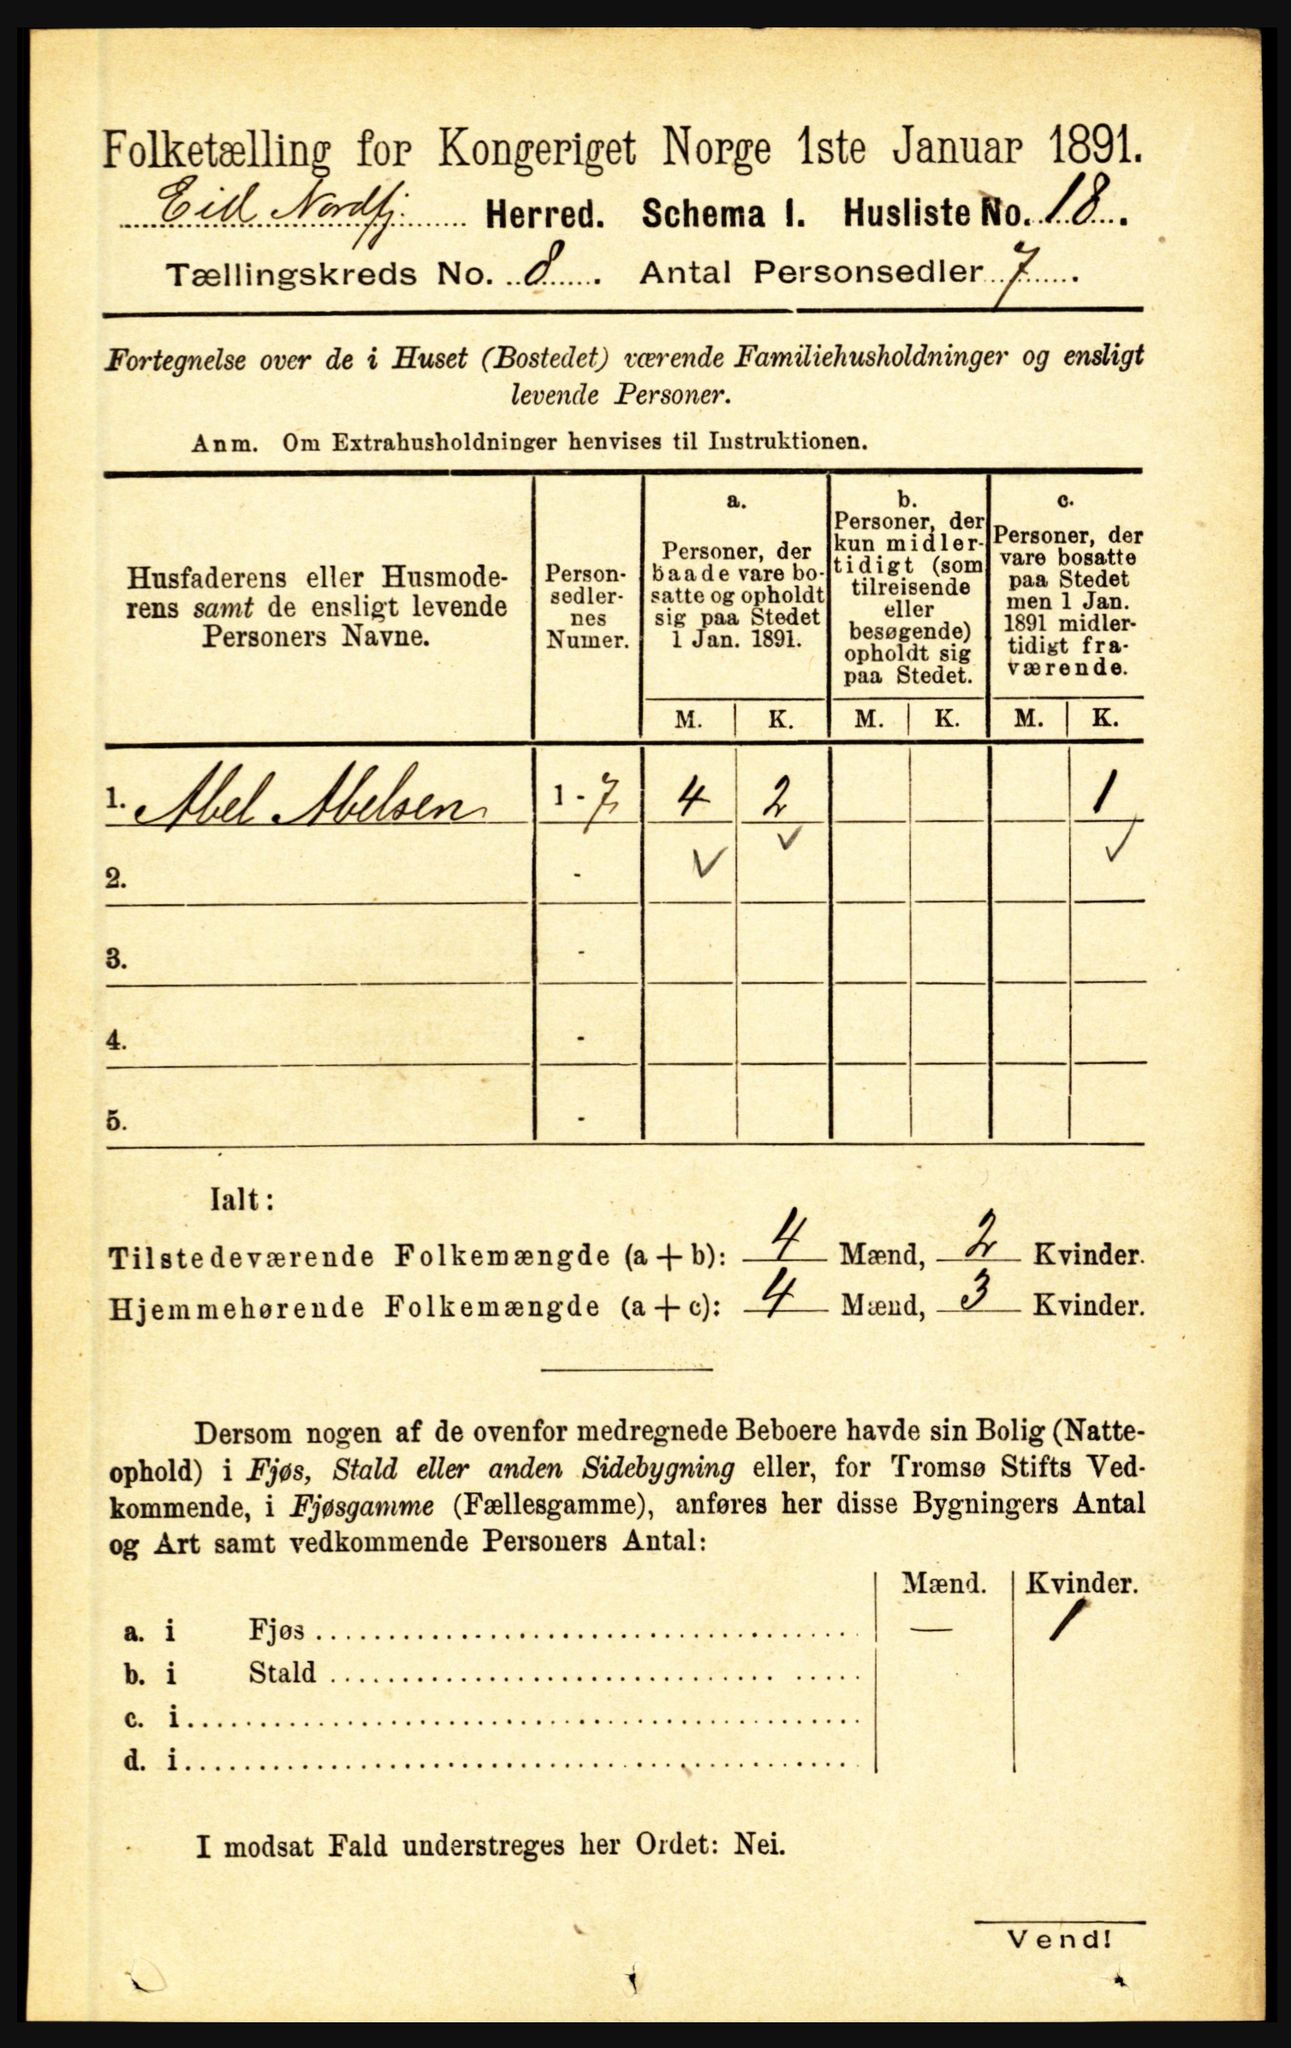 Folketælling for Kongeriget Norge 1ste Januar 1891.
Eid Nordfj. Herred. Schema I. Husliste No. 18.
Tællingskreds No. 8. Antal Personsedler 7.
Fortegnelse over de i Huset (Bostedet) værende Familiehusholdninger og ensligt
levende Personer.
Anm. Om Extrahusholdninger henvises til Instruktionen.
Husfaderens eller Husmode-
rens samt de ensligt levende
Personers Navne.
Person-
sedler-
nes
Numer.
a.
Personer, der
baade vare bo-
satte og opholdt
sig paa Stedet
1 Jan. 1891.
b.
Personer, der
kun midler-
tidigt (som
tilreisende
eller
besøgende)
opholdt sig
paa Stedet.
c.
Personer, der
vare bosatte
paa Stedet
men 1 Jan.
1891 midler-
tidigt fra-
værende.
M. K. M. K. M. K.
1. Abel Abelsen 1 - 7 4 2 1
2. -
3. -
4. -
5. -
Ialt:
Tilstedeværende Folkemængde (a + b): 4 Mænd, 2 Kvinder.
Hjemmehørende Folkemængde (a + c): 4 Mænd, 3 Kvinder.
Dersom nogen af de ovenfor medregnede Beboere havde sin Bolig (Natte-
ophold) i Fjøs, Stald eller anden Sidebygning eller, for Tromsø Stifts Ved-
kommende, i Fjøsgamme (Fællesgamme), anføres her disse Bygningers Antal
og Art samt vedkommende Personers Antal:
Mænd. Kvinder.
a. i Fjøs — 1
b. i Stald
c. i
d. i
I modsat Fald understreges her Ordet: Nei.
Vend!